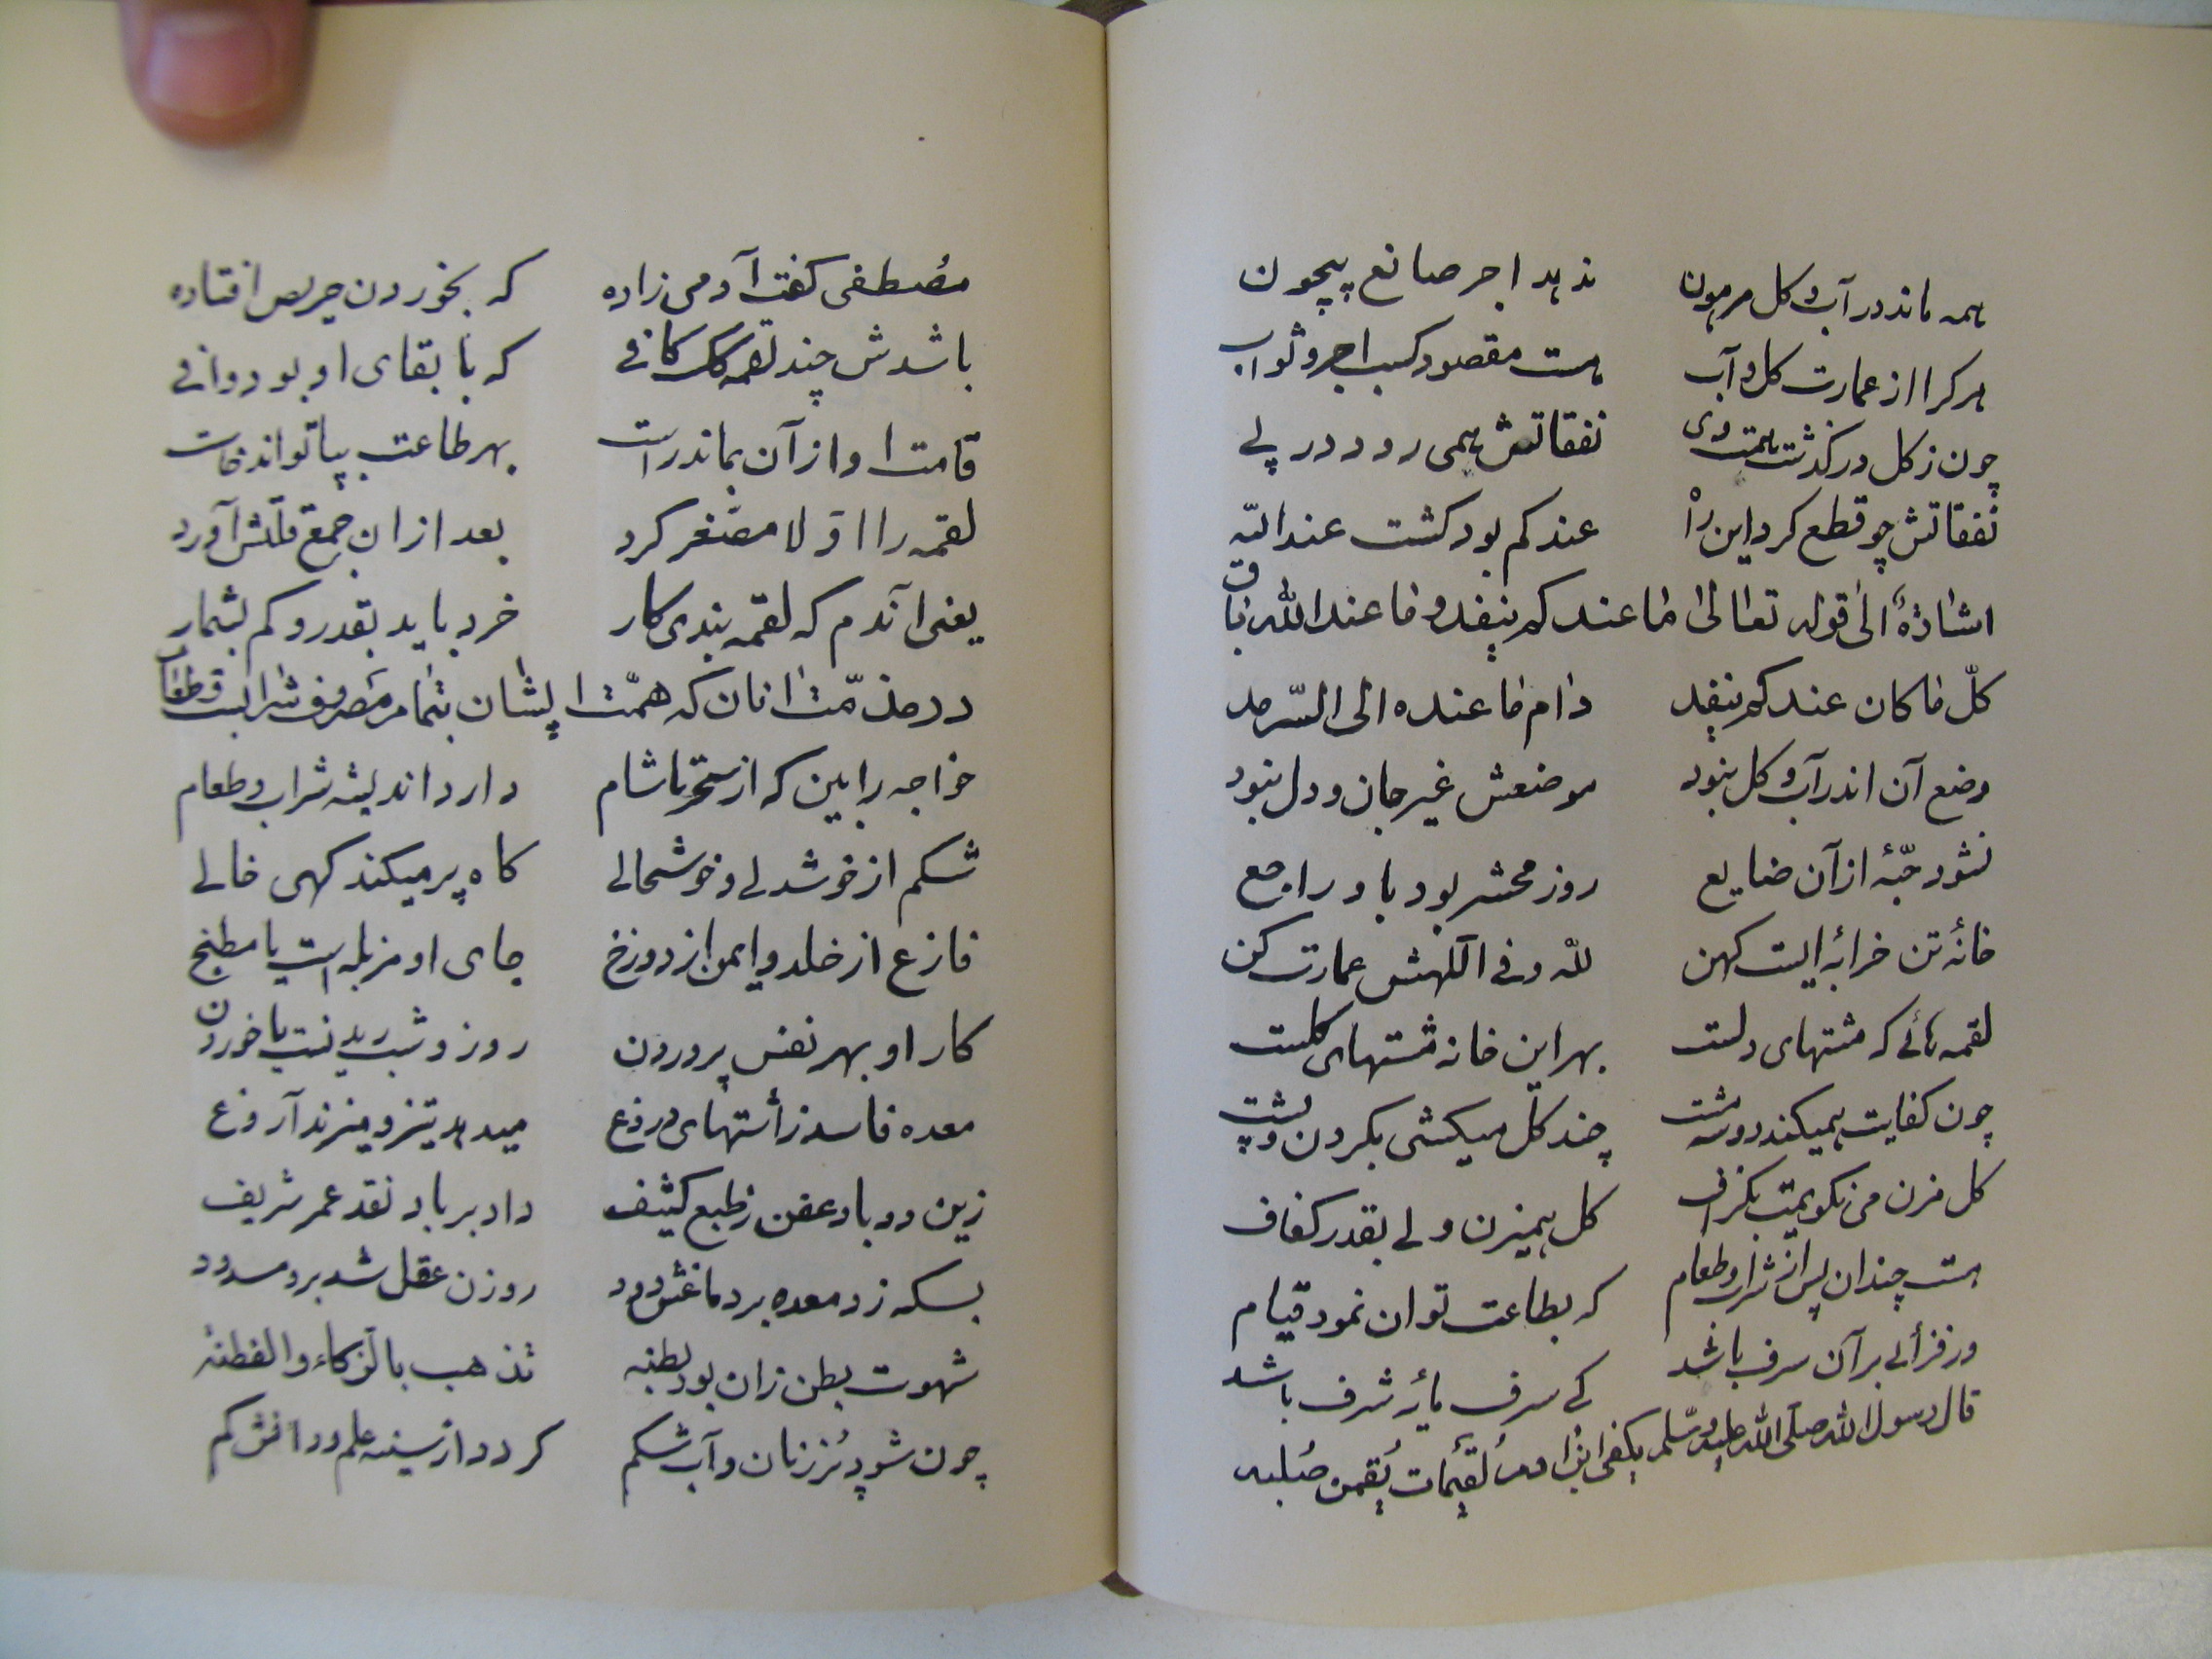 همه ماند در آب و کل مرهون ندهد اجر صانع بیچون
هر کرا از عمارت کل و آب هست مقصود کسب اجر و ثواب
چون ز کل در کذشت همت وی نفقاتش همی رود در پی
نفقاتش چو قطع کرد این راه عندکم بود کشت عند الله
اشارة الی قوله تعالی ما عندکم ینفد و ما عند الله باق
کلّ ما کان عندکم ینفد دام ما عنده الی السّرمد
وضع آن اندر آب و کل نبود موضعش غیر جان و دل نبود
نشود حبّهٔ از آن ضایع روز محشر بود باو راجع
خانهٔ تن خرابهٔ ایست کهن لله و فی اللهش عمارت کن
لقمه هائی که مشتهای دلست بهر این خانه مشتهای کلست
چون کفایت همیکند دو سه مشت چند کل میکشی بکردن و پشت
کل مزن من نکویمت بکزاف کل همیزن ولی بقدر کفاف
هست چندان بس از شراب و طعام که بطاعت توان نمود قیام
ور فزائی بر آن سرف باشد کی سرف مایهٔ شرف باشد
قال رسول الله صلّی الله علیه و سلّم یکفی ابن آدم لقیمات یقمن صلبه
مصطفی کفت آدمی زاده که بخوردن حریص افتاده
باشدش چند لقمه کک کافی که با بقای او بود وافی
قامت او از آن بماند راست بهر طاعت بپا تواند خاست
لقمه را اوّلا مصغّر کرد بعد ازان جمع قلّتش آورد
یعنی آندم که لقمه بندی کار خرد باید بقدر و کم بشمار
در مذمّت انان که همّت ایشان بتمام مصروف شرابست و طعام
خواجه را بین که از سحر تا شام دارد اندیشه شراب و طعام
شکم از خوشدلی و خوشحالی کاه پر میکند کهی خالی
فارغ از خلد و ایمن از دوزخ جای او مزبله است یا مطبخ
کار او بهر نفس پروردن روز و شب ریدنست یا خوردن
معده فاسد ز اشتهای دروغ میدهد تیز و میزند آروغ
زین دو باد عفن ز طبع کثیف داد بر باد نقد عمر شریف
بسکه زد معده بر دماغش دود روزن عقل شد برو مسدود
شهوت بطن زان بود بطنه تذهب بالذکاء والفطنه
چون شود پُر ز نان و آب شکم کردد از سینه علم و دانش کم